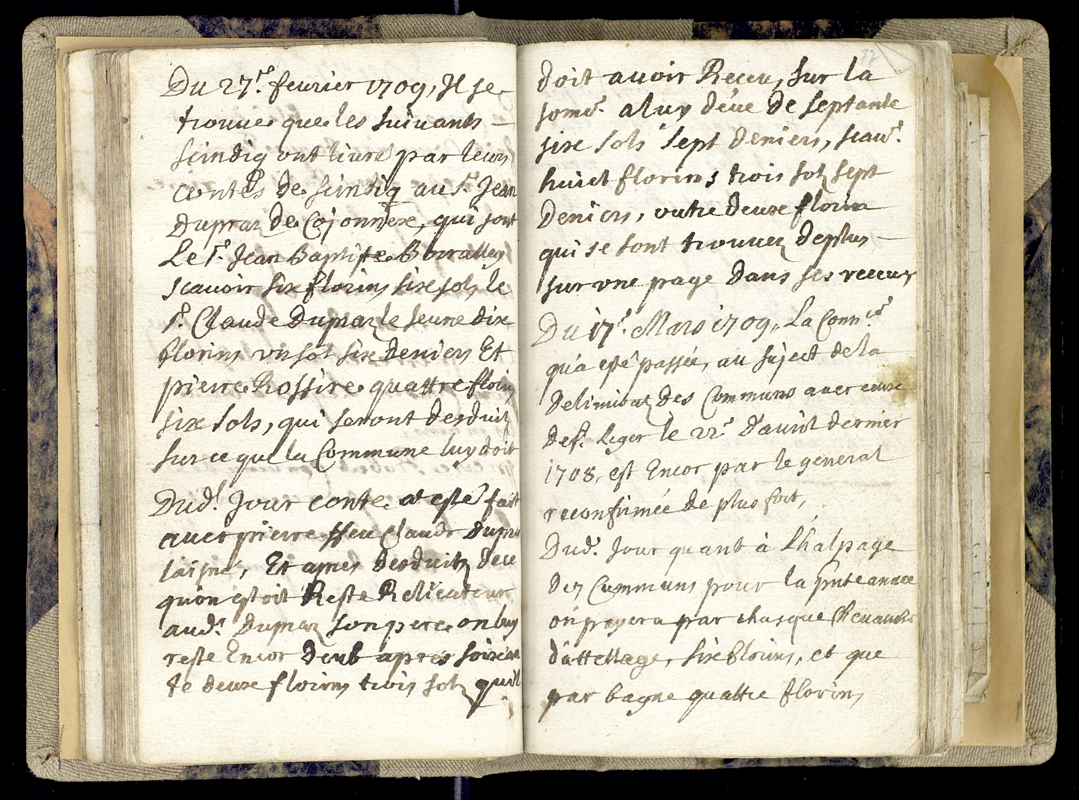 Du 27.e fevrier 1709, Il se
trouve que les suivants
scindiq ont livré par leurs
contes de scindiq au Sr. Jean
Dupraz de Cojonnex, qui sont
Le Sr. Jean Baptiste
scavoir six florins six sols, le
Sr. Claude Dupraz le jeune dix
florins un sol six deniers Et
pierre Rossire quattre florins
six sols, qui seront desduit
sur ce que la Commune luy doit
Dud. Jour conte at esté fait
avec pierre ffeu Claude Dupra
laisné, Et apres desduit dece
quon estoit Reste Relicateur
aud. Dupraz son pere on luy
reste Encor deub apres soixan
te deuxe florins trois sols quil
doit avoir Receu, sur la
some a luy deue de septante
sixe sols sept deniers, scav.r
huict florins trois sols sept
Deniers, outre deuxe florin
qui se sont trouvez deplus
sur une page dans ses receus
Du 17e. Mars 1709, La Conn.ce
qu'a esté passée, au suject de la
Delimitat.on des Communs avec ceux
de St. Leger le 22e. d'avril dernier
1708, est Encor par le general
reconfirmée de plus fort,
Dud. Jour quant à Lhalpage
des Communs pour la pnte année
on payera par chasque
d'attellage, sixe florins, et que
par bague quattre florins